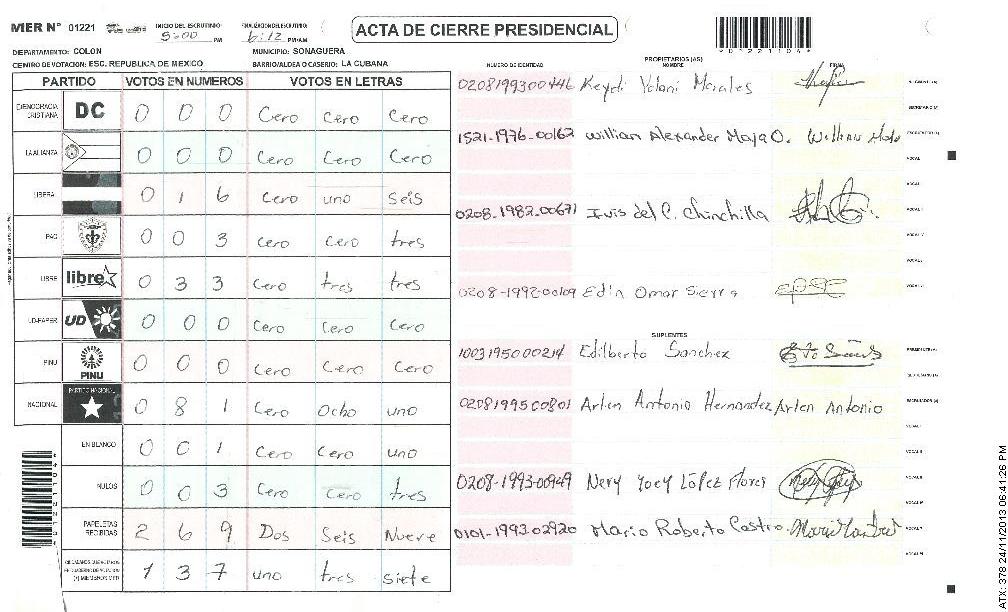 MER N° 01221 INICIO DEL ESCRUTINIO: 5:00 PM FINALIZACION DEL ESCRUTINIO: 6:12 PM/AM ACTA DE CIERRE PRESIDENCIAL
DEPARTAMENTO: COLON MUNICIPIO: SONAGUERA
CENTRO DE VOTACION: ESC. REPUBLICA DE MEXICO BARRIO/ALDEA O CASERIO: LA CUBANA
PARTIDO VOTOS EN NUMEROS VOTOS EN LETRAS
DEMOCRACIA CRISTIANA DC 0 0 0 Cero Cero Cero
LA ALIANZA 0 0 0 Cero Cero Cero
LIBERAL 0 1 6 Cero uno seis
PAC 0 0 3 Cero Cero tres
LIBRE libre 0 3 3 Cero tres tres
UD-FAPER UD 0 0 0 Cero Cero Cero
PINU PINU 0 0 0 Cero Cero Cero
NACIONAL PARTIDO NACIONAL 0 8 1 Cero Ocho uno
EN BLANCO 0 0 1 Cero Cero uno
NULOS 0 0 3 Cero Cero tres
PAPELETAS RECIBIDAS 2 6 9 Dos Seis Nueve
(+) MIEMBROS MER 1 3 7 uno tres siete
PROPIETARIOS (AS)
NUMERO DE IDENTIDAD NOMBRE FIRMA
0208199300446 Keydi Yolani Morales
1521-1976-00162 Willian Alexander Maya O.
0208-1982-00671 Ivis del C. Chinchilla
0208-1992-00109 Edin Omar Sierra
SUPLENTES
1003195000214 Edilberto Sanchez
0208199500801 Arlen Antonio Hernandez Arlen Antonio
0208-1993-00949 Nery Yoey López Flores
0101-1993-02920 Mario Roberto Castro
ATX: 378 24/11/2013 06:41:26 PM